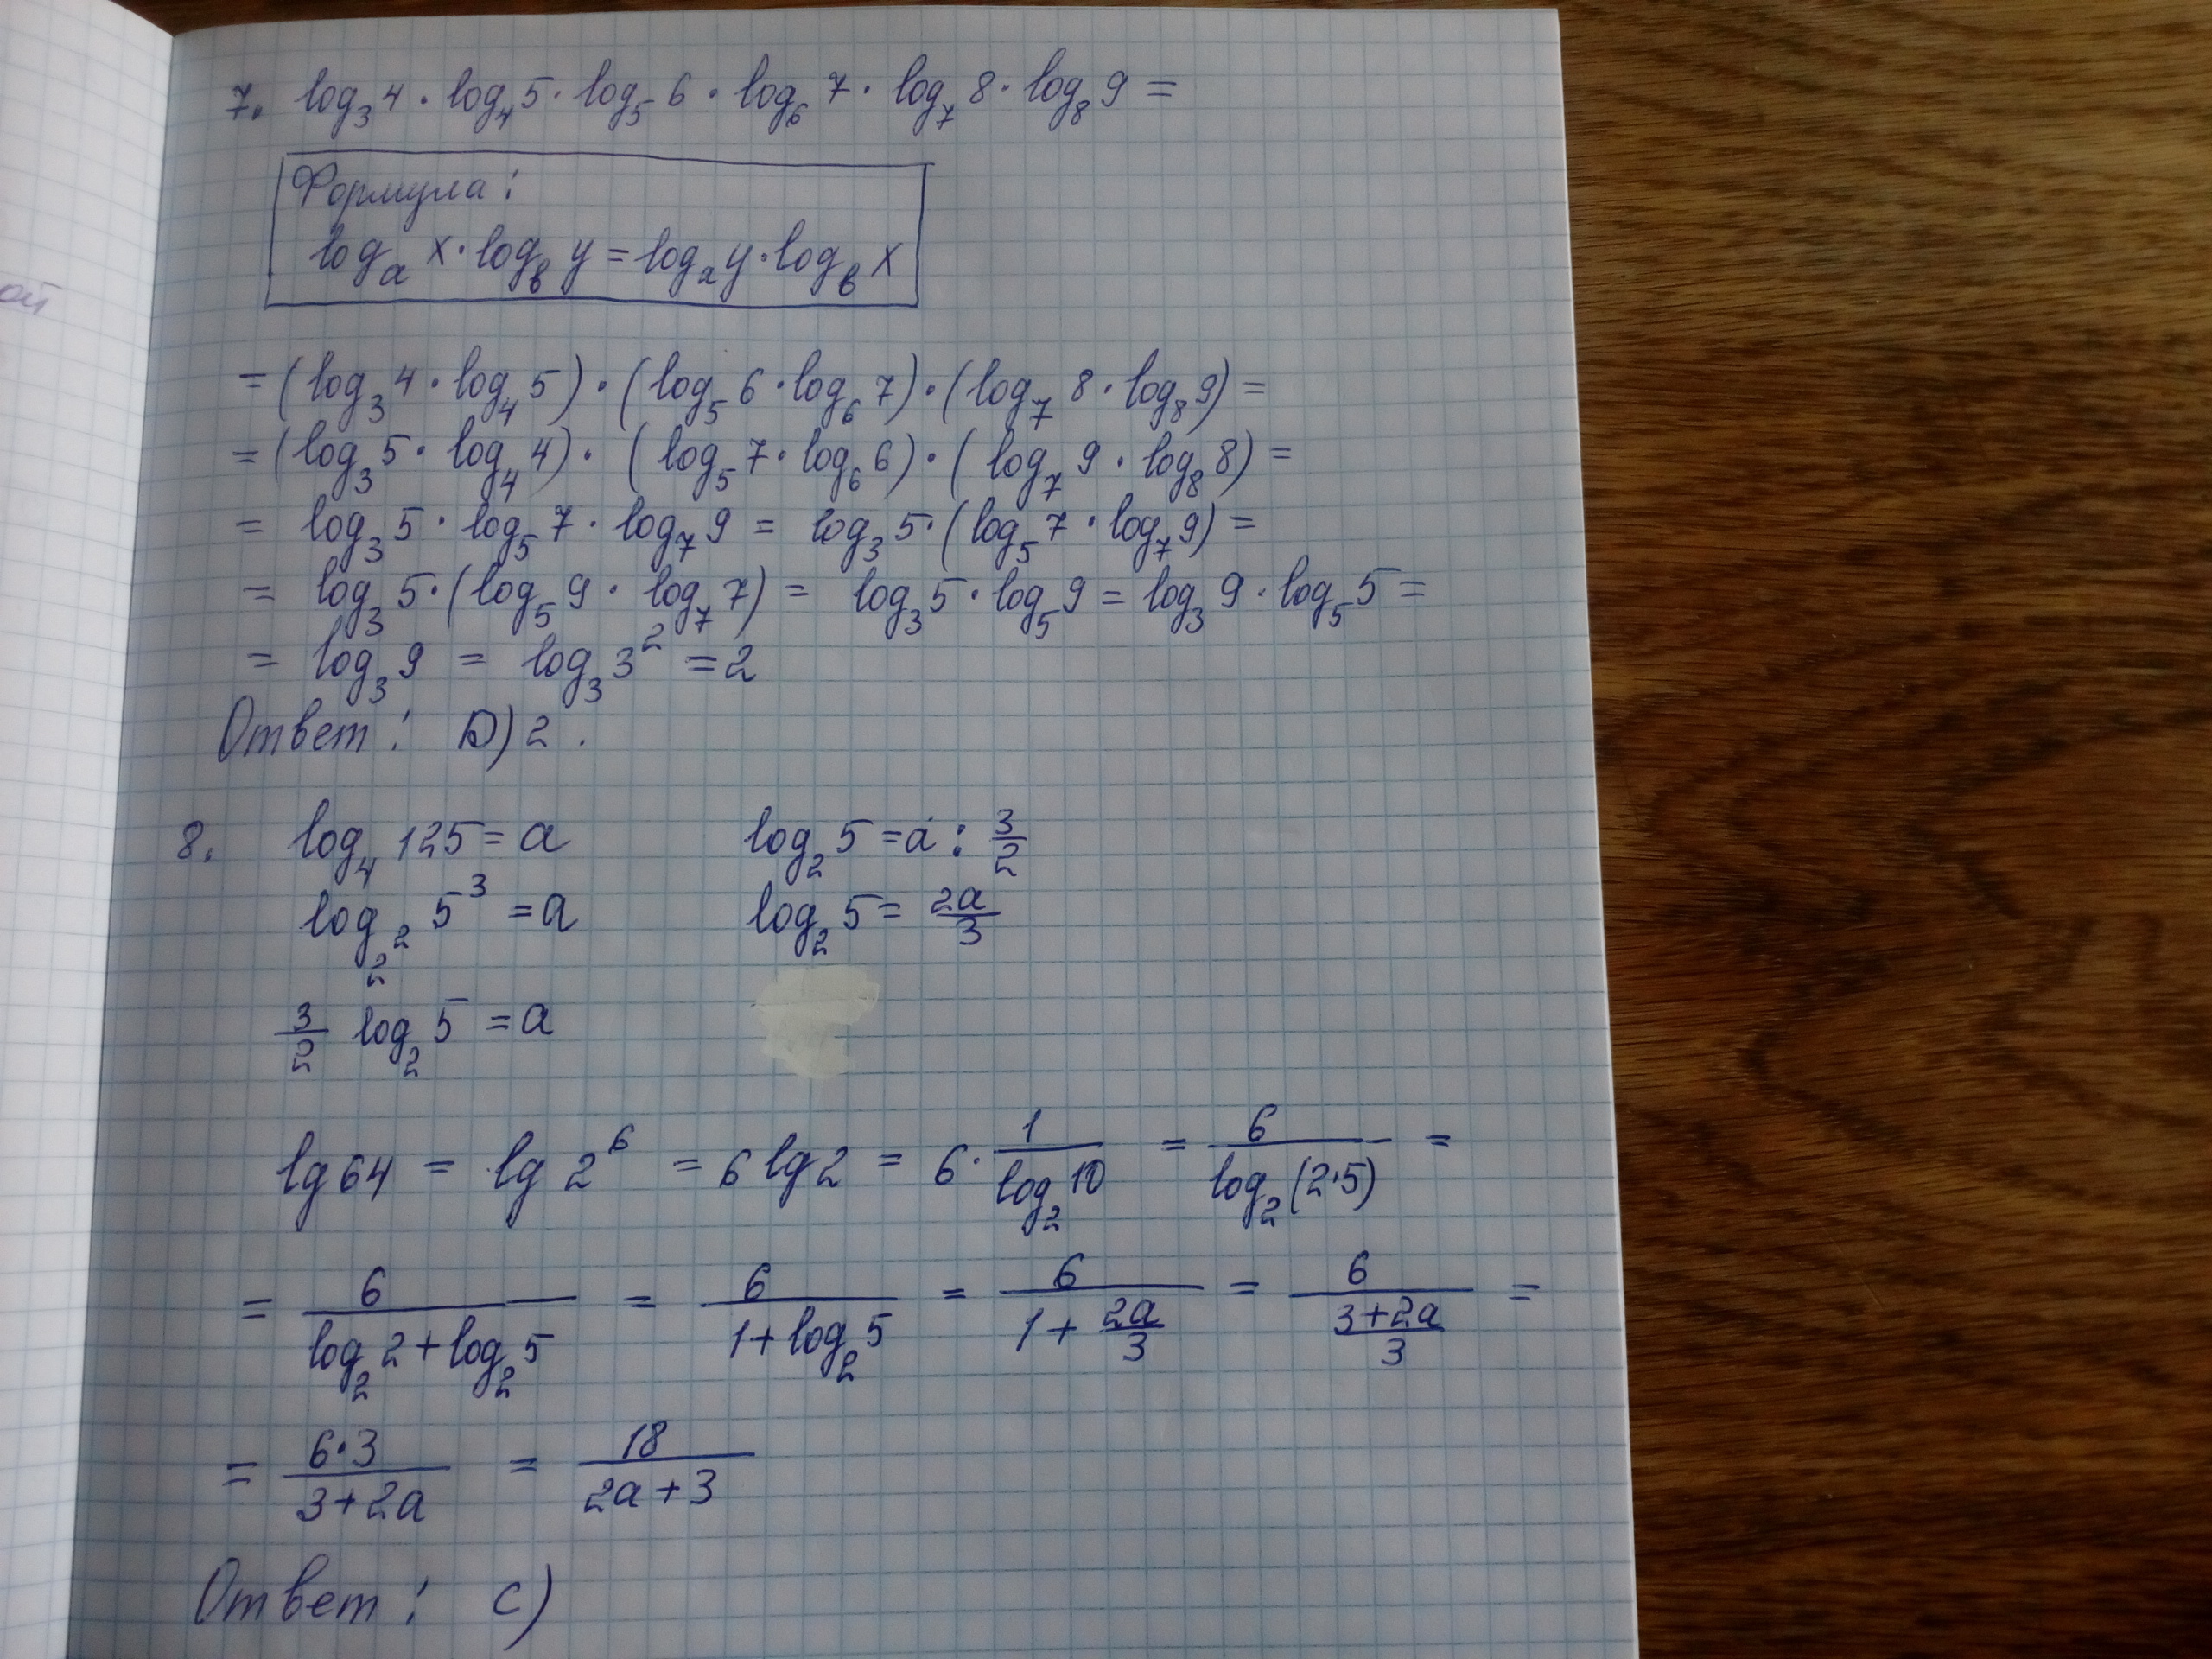 ой
7. log₃4 · log₄5 · log₅6 · log₆7 · log₇8 · log₈9 =
Формула:
logₐ x · log_в y = logₐ y · log_в x
= (log₃4 · log₄5) · (log₅6 · log₆7) · (log₇8 · log₈9) =
= (log₃5 · log₄4) · (log₅7 · log₆6) · (log₇9 · log₈8) =
= log₃5 · log₅7 · log₇9 = log₃5 · (log₅7 · log₇9) =
= log₃5 · (log₅9 · log₇7) = log₃5 · log₅9 = log₃9 · log₅5 =
= log₃9 = log₃3² = 2
Ответ: D) 2.
8. log₄125 = a
log_{2²} 5³ = a
3/2 log₂5 = a
log₂5 = a : 3/2
log₂5 = 2a/3
lg 64 = lg 2⁶ = 6 lg 2 = 6 · 1/log₂10 = 6/log₂(2·5) =
= 6/(log₂2 + log₂5) = 6/(1 + log₂5) = 6/(1 + 2a/3) = 6/((3+2a)/3) =
= 6·3/(3+2a) = 18/(2a+3)
Ответ: C)